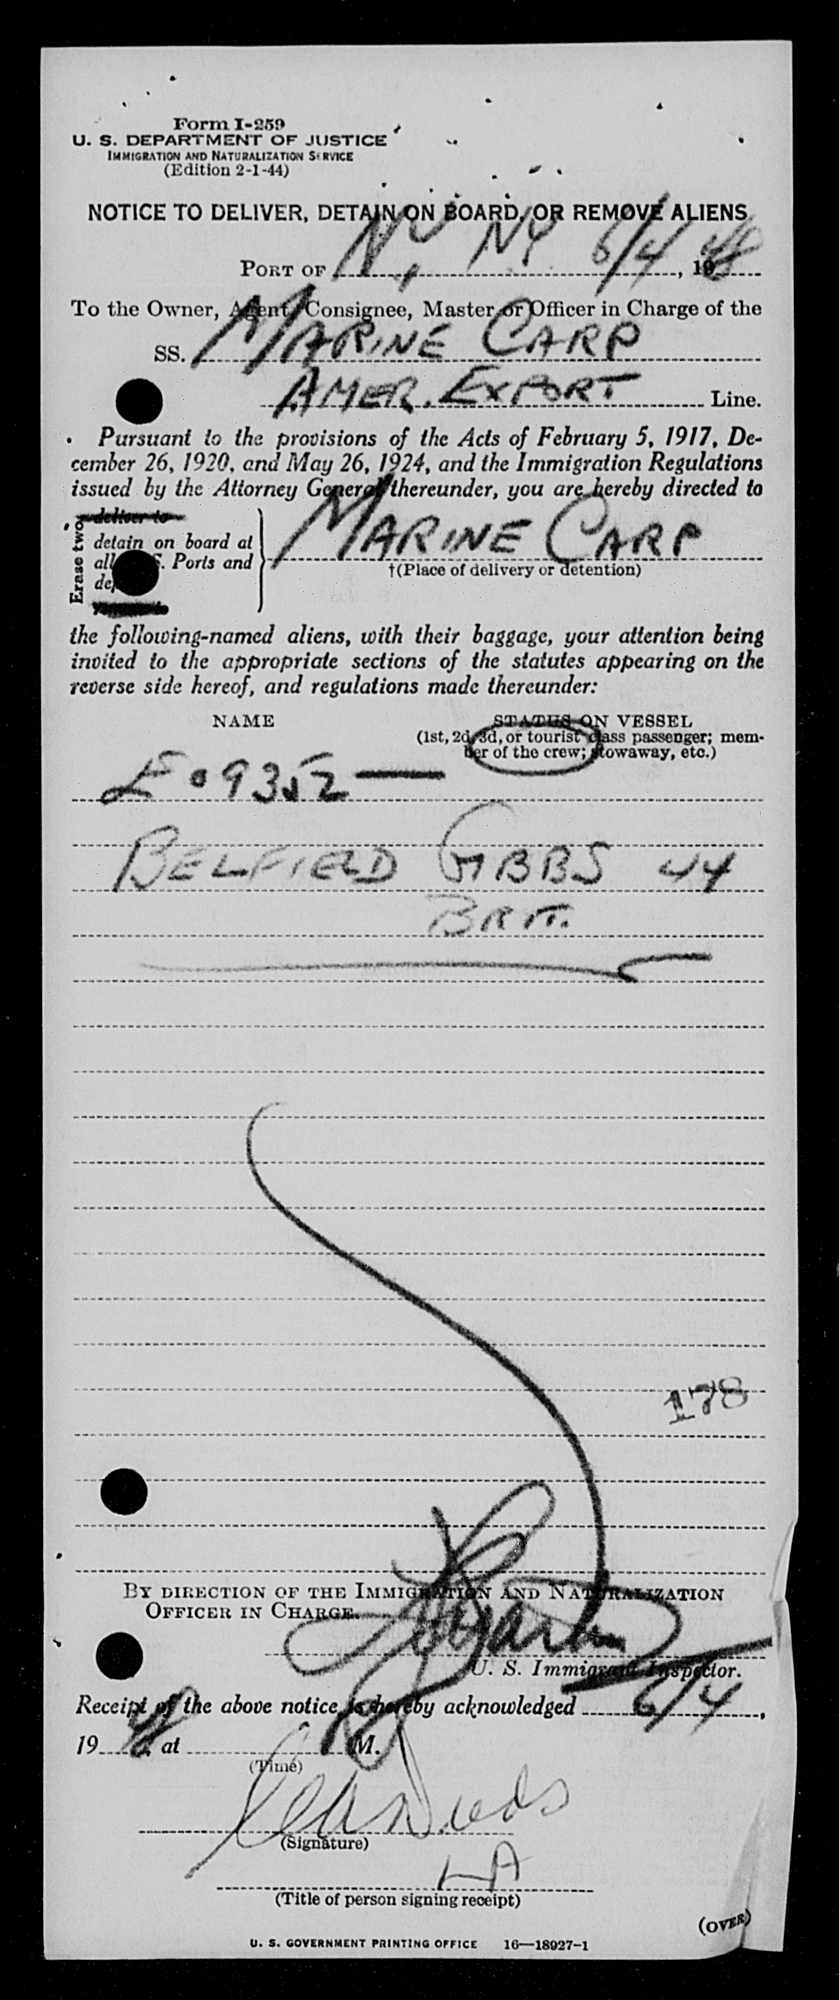 Form I-259
U. S. DEPARTMENT OF JUSTICE
IMMIGRATION AND NATURALIZATION SERVICE
(Edition 2-1-44)
NOTICE TO DELIVER, DETAIN ON BOARD, OR REMOVE ALIENS
PORT OF N.Y. NY 6/4, 1948
To the Owner, Agent, Consignee, Master or Officer in Charge of the
SS. MARINE CARP
AMER. EXPORT Line.
Pursuant to the provisions of the Acts of February 5, 1917, De-
cember 26, 1920, and May 26, 1924, and the Immigration Regulations
issued by the Attorney General thereunder, you are hereby directed to
Erase two
deliver to
detain on board at
all S. Ports and
MARINE CARP
†(Place of delivery or detention)
the following-named aliens, with their baggage, your attention being
invited to the appropriate sections of the statutes appearing on the
reverse side hereof, and regulations made thereunder:
NAME
STATUS ON VESSEL
(1st, 2d, 3d, or tourist class passenger; mem-
ber of the crew; stowaway, etc.)
09352 —
BELFIELD GIBBS 44
BRIT.
178
BY DIRECTION OF THE IMMIGRATION AND NATURALIZATION
OFFICER IN CHARGE.
U. S. Immigrant Inspector.
Receipt of the above notice is hereby acknowledged 6/4,
1948, at M.
(Time)
(Signature)
(Title of person signing receipt)
(OVER)
U. S. GOVERNMENT PRINTING OFFICE 16—18927-1